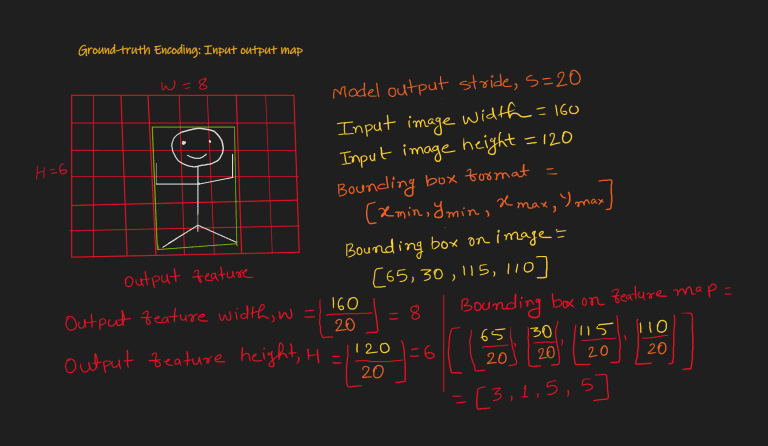 Ground-truth Encoding: Input output map
W = 8
H=6
Output feature
Model output stride, S=20
Input image width = 160
Input image height = 120
Bounding box format =
[xmin, ymin, xmax, ymax]
Bounding box on image =
[65, 30, 115, 110]
Output feature width, W = ⌊160/20⌋ = 8
Output feature height, H = ⌊120/20⌋ = 6
Bounding box on feature map =
[⌊65/20⌋, ⌊30/20⌋, ⌊115/20⌋, ⌊110/20⌋]
= [3, 1, 5, 5]